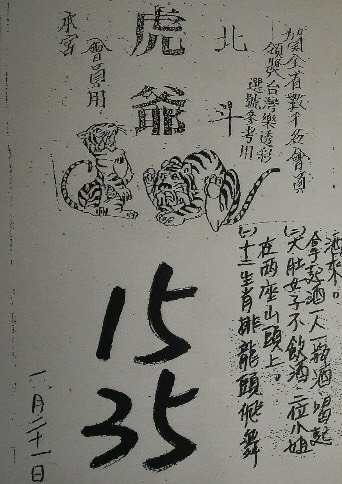 賀全省數千名會員
領獎台灣樂透彩
選號參考用
北斗
虎爺
會員用
(一)十二生肖排龍頭飛舞
在兩座山頭上。
(二)大肚女子不飲酒三位小姐
拿起酒一人一瓶酒喝起
酒來。
15
35
一月二十一日